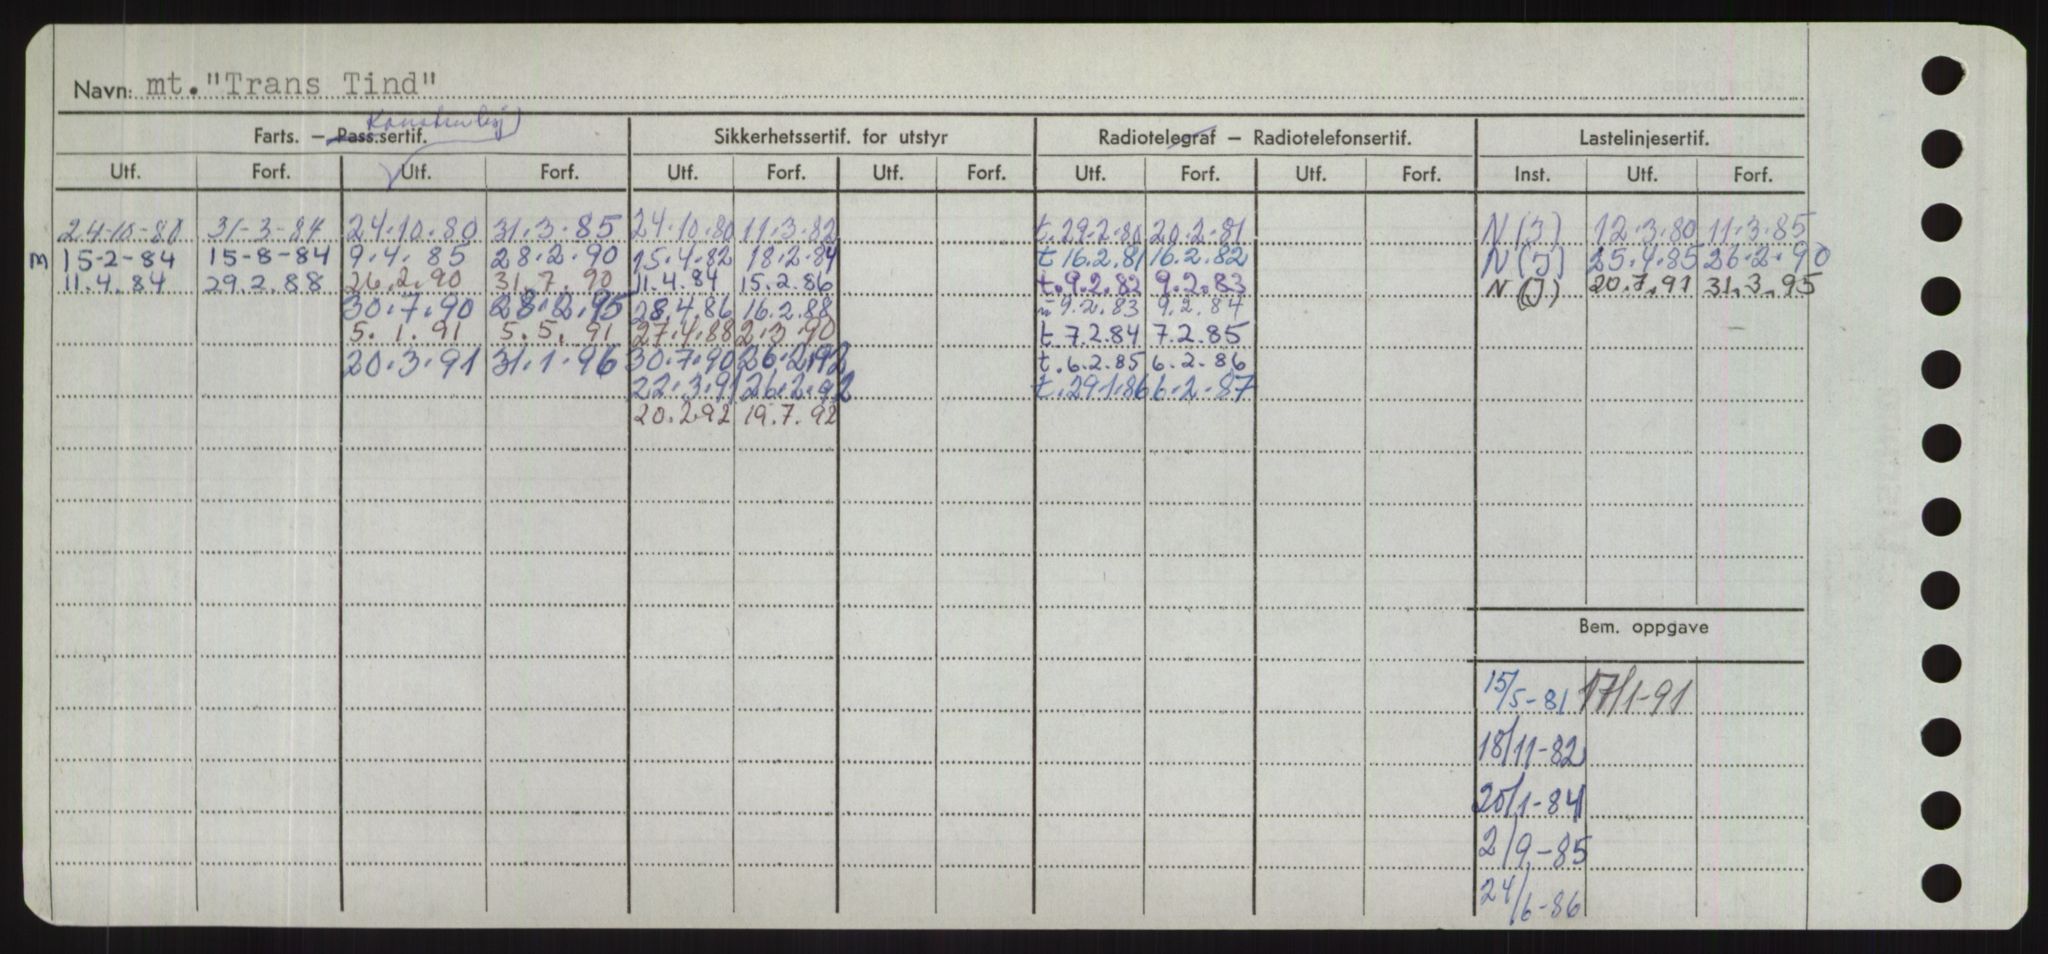 Navn: mt. "Trans Tind"
Farts. – Pass.sertif. Sikkerhetssertif. for utstyr Radiotelegraf – Radiotelefonsertif. Lastelinjesertif.
Utf. Forf. Utf. Forf. Utf. Forf. Utf. Forf. Utf. Forf. Utf. Forf. Inst. Utf. Forf.
24-10-80 31-3-84 24.10.80 31.3.85 24.10.80 11.3.82 t.29.2.80 20.2.81 N(J) 12.3.80 11.3.85
m 15-2-84 15-8-84 9.4.85 28.2.90 15.4.82 18.2.84 t 16.2.81 16.2.82 N(J) 25.4.85 26.2.90
11.4.84 29.2.88 26.2.90 31.7.90 11.4.84 15.2.86 t.9.2.82 9.2.83 N(J) 20.7.91 31.3.95
30.7.90 28.2.95 28.4.86 16.2.88 9.2.83 9.2.84
5.1.91 5.5.91 27.4.88 2.3.90 t 7.2.84 7.2.85
20.3.91 31.1.96 30.7.90 26.2.92 t.6.2.85 6.2.86
22.3.91 26.2.92 t.29.1.86 6.2.87
20.2.92 19.7.92
Bem. oppgave
15/5-81 17/1-91
18/11-82
20/1-84
2/9-85
24/6-86